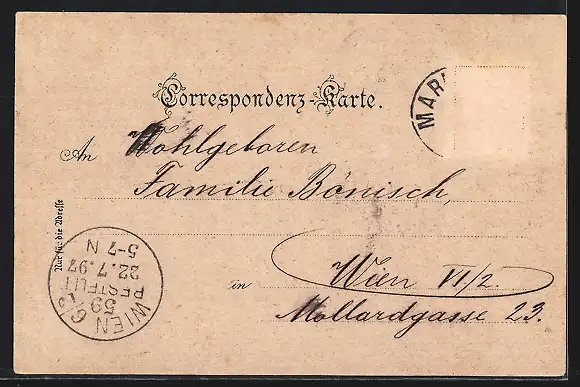 Correspondenz-Karte.
MAR
An Wohlgeboren
Familie Bönisch,
in Wien VI/2.
Mollardgasse 23.
Nur für die Adresse
WIEN 6/3
59
BESTELLT
22.7.97
5-7 N